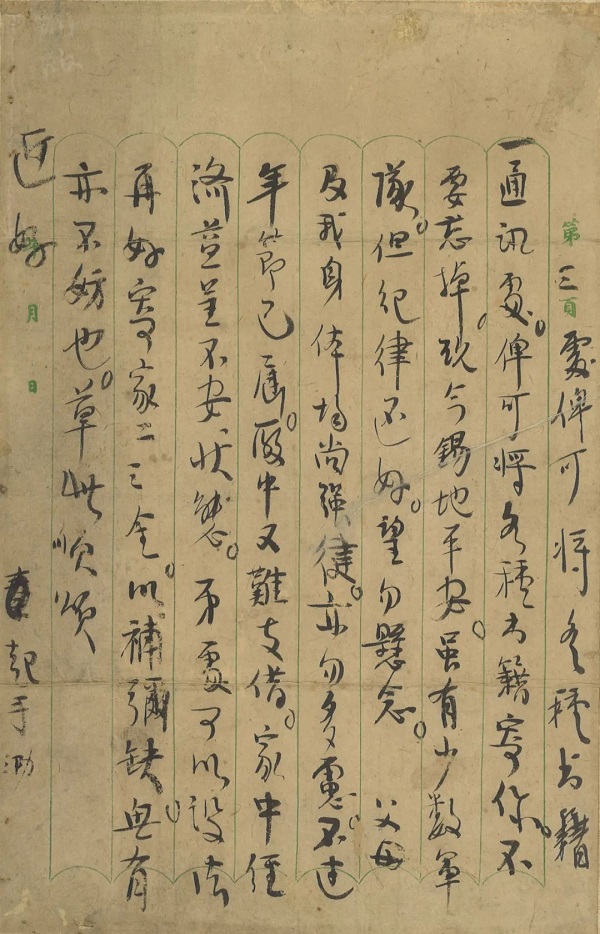 第三頁
處俾可将各種书籍
一通訊處。俾可将各種书籍寄你。不
要忘掉。现今錫地平安。虽有少数軍
隊。但纪律还好。望勿懸念。父母
及我身体均尚强健。亦勿多慮。不过
年節已届。廠中又難支借。家中經
濟並呈不安状態。弟處可以設法
再好寄家二三金。以補彌缺。無有
亦不妨也。草此順頌
近好
月 日
起手泐